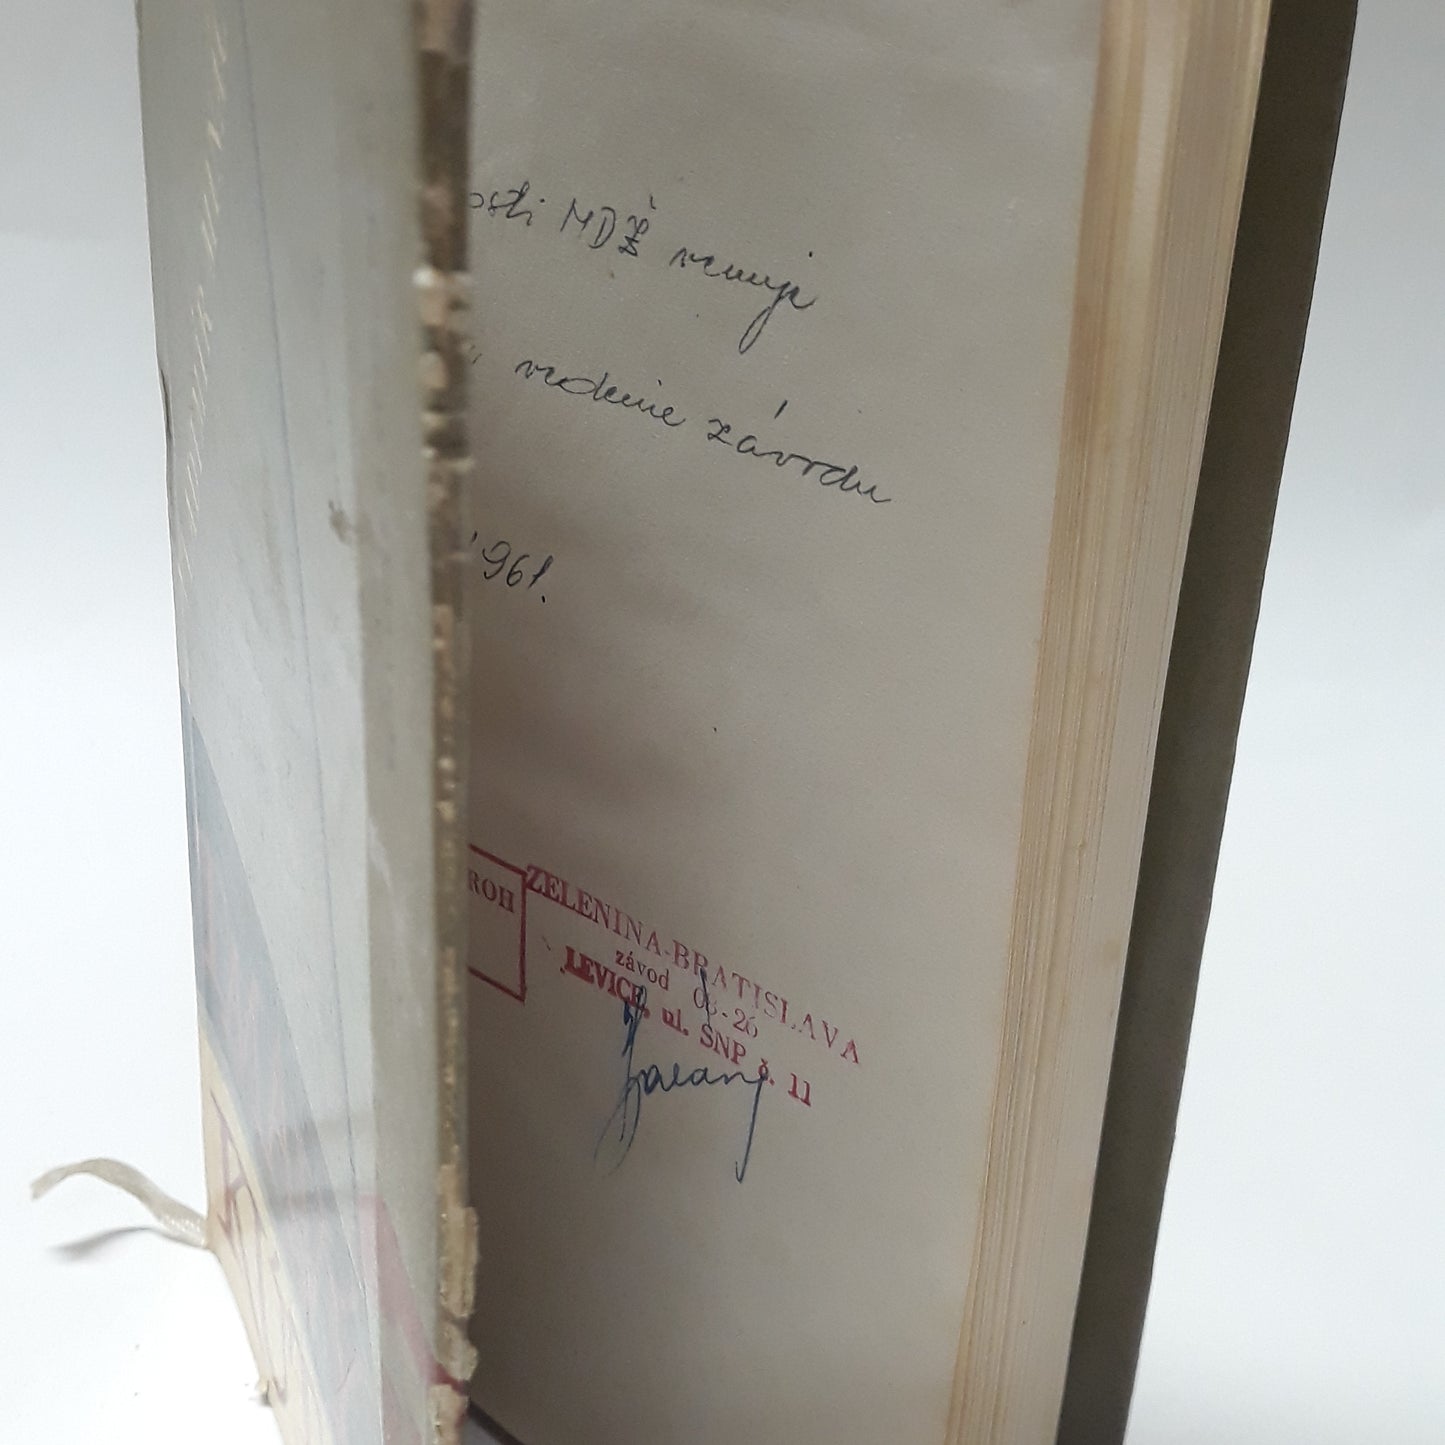 osti MDŽ venuje
vedenie závodu
1961.
ROH
ZELENINA-BRATISLAVA
závod 08-26
LEVICE, ul. SNP č. 11